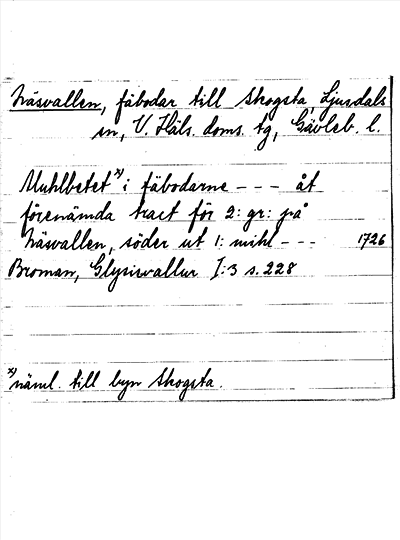 Näsvallen, fäbodar till Skogsta, Ljusdals
sn, V. Häls. doms. tg, Gävleb. l.
Muhlbetet x) i fäbodarne --- åt
förenämda tract för 2: gr: på
Näsvallen, söder ut 1: mihl --- 1726
Broman, Glysisvallur I:3 s. 228
x) näml. till byn Skogsta.